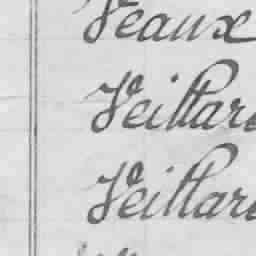 Veaux
Veillar
Veillar